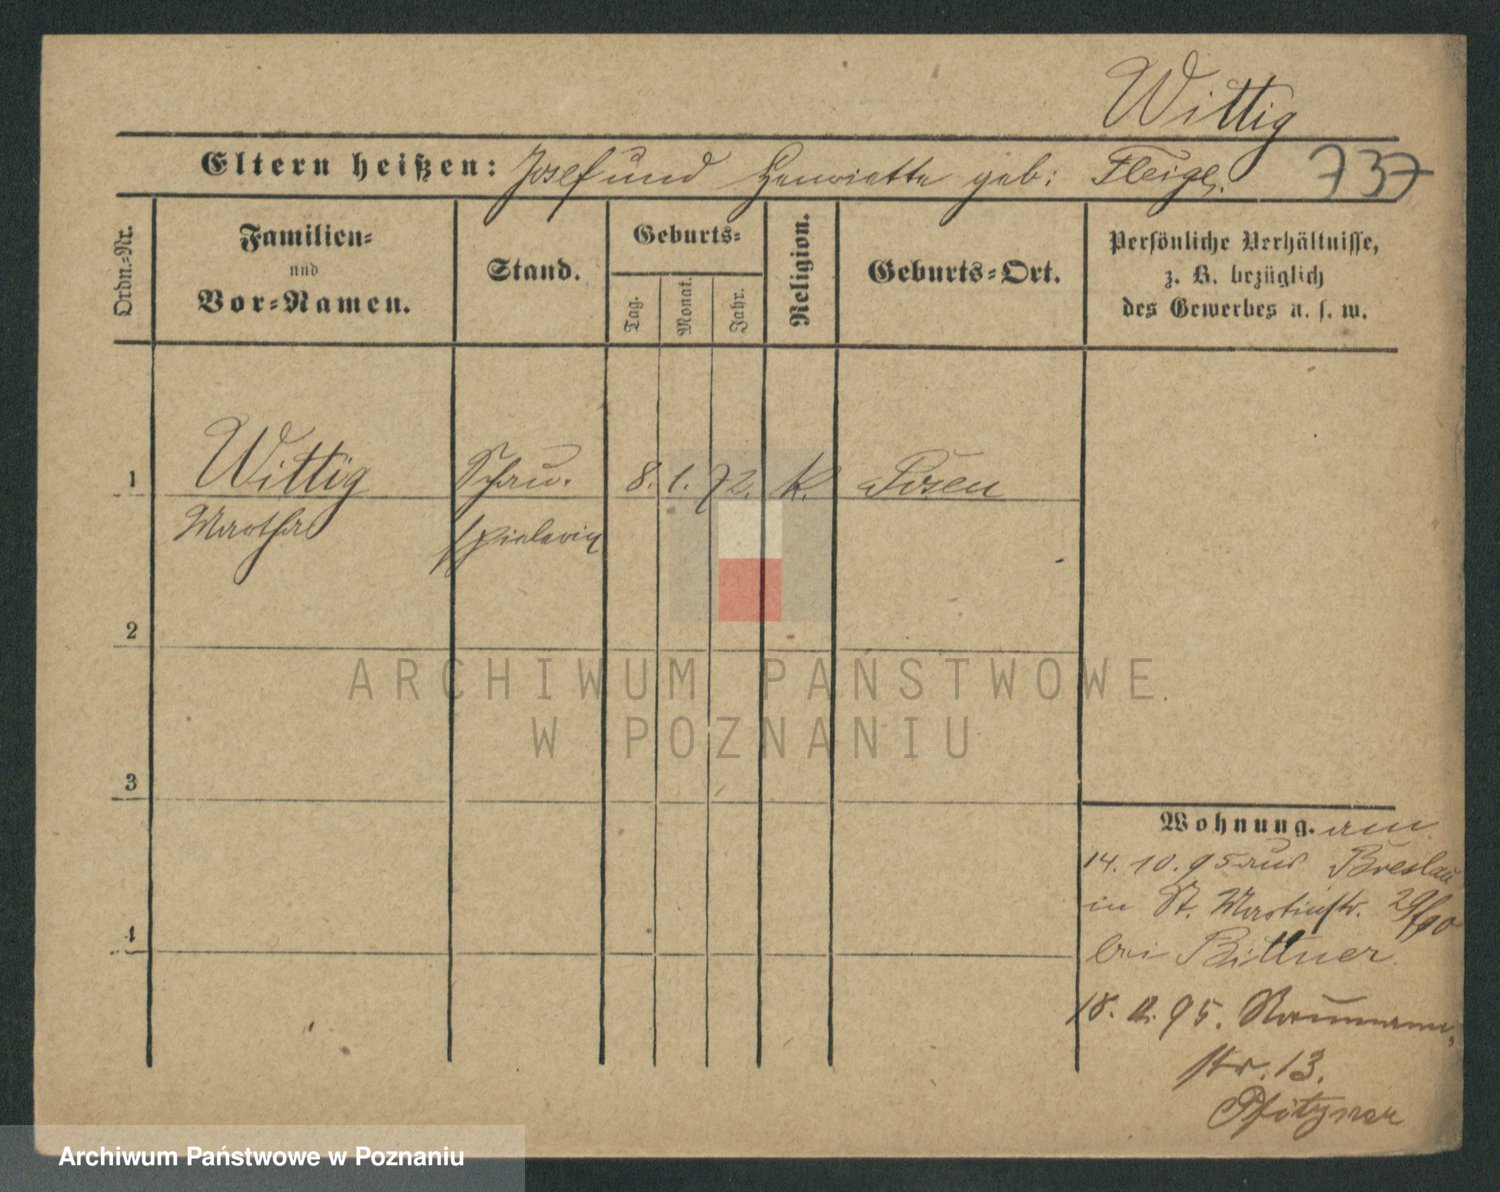 Wittig
Eltern heißen: Josef und Henriette geb: Fleige.
737
Ordn.-Nr.
Familien-
und
Vor-Namen.
Stand.
Geburts-
Tag.
Monat.
Jahr.
Religion.
Geburts-Ort.
Persönliche Verhältnisse,
z. B. bezüglich
des Gewerbes u. s. w.
1 Wittig Schau- 8. 1. 72. K. Posen
Martha spielerin
2
3
4
Wohnung. am
14. 10. 95 aus Breslau
in St. Martinstr. 29/90
bei Bittner.
18. 95. Naumann-
str. 13.
Pfitzner
ARCHIWUM PAŃSTWOWE
W POZNANIU
Archiwum Państwowe w Poznaniu